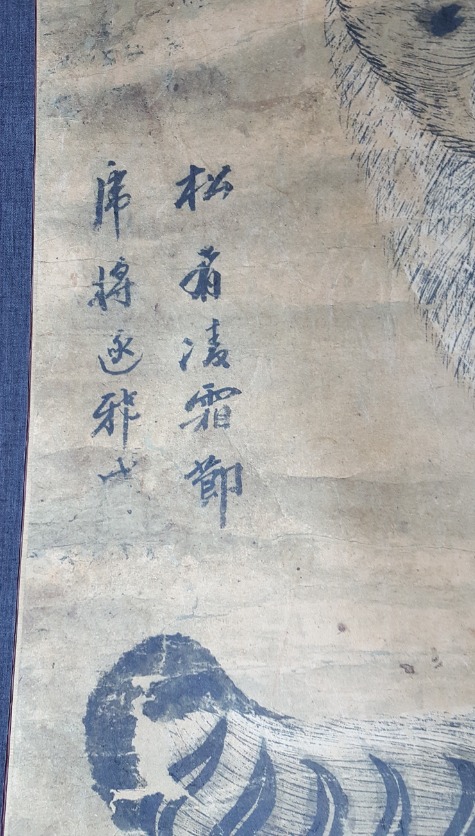 松有凌霜節
虎將逐邪